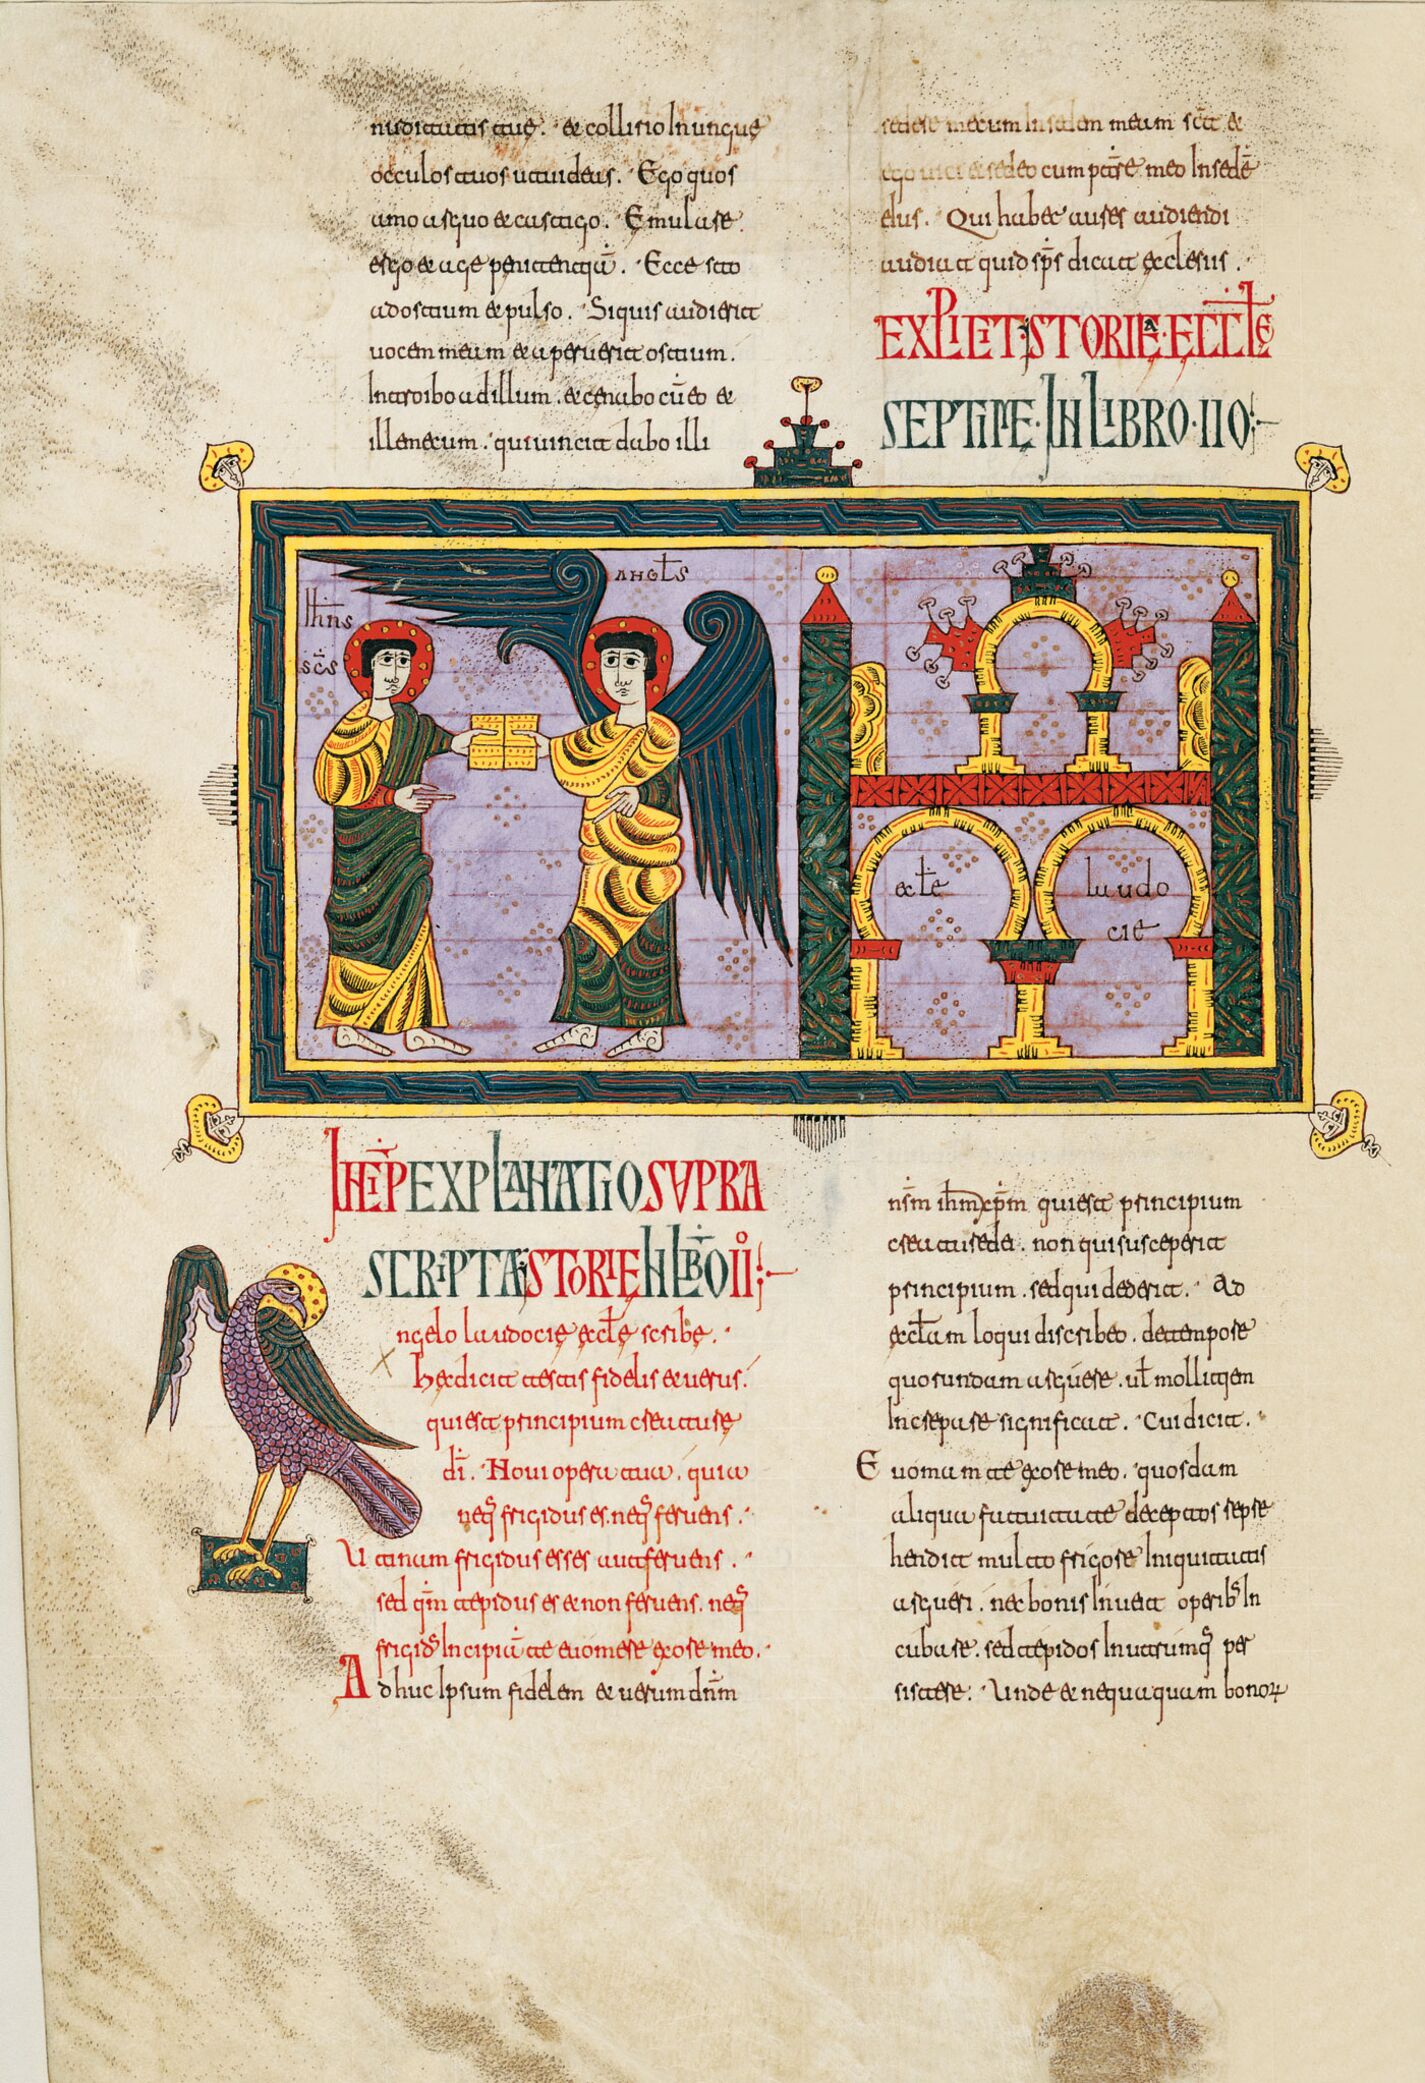 nuditatis tuę. et collirio Inungue
occulos tuos ut uideas. Ego quos
amo arguo et castigo. Emulare
ergo et age penitentiā. Ecce sto
ad ostium et pulso. Siquis audierit
uocem meam et aperuerit ostium.
Intrabo ad illum. et cenabo cū eo et
ille mecum. qui uincit dabo illi
sedere mecum In solem meum sct̄ et
ego uici et sedeo cum patre meo In sede
eius. Qui habet aures audiendi
audiat quid sp̄s dicat ęclesiis.
EXPLICIT STORIĘ ĘCCLTĘ
SEPTIME IN LIBRO IIO
ANGLS
Ihns
scs
eclte
laudo
cie
INCIP EXPLANATIO SUPRA
SCRIPTĘ STORIĘ IN LBO II
ngelo laudocię ęcltę scribe.
hec dicit testis fidelis et uerus.
qui est principium creature
dī. Noui opera tua. quia
neq frigidus es. neq feruens.
Utinam frigidus esses aut feruens.
sed qm̄ tepidus es et non feruens. neq
frigid Incipiā te euomere ex ore meo.
Adhuc Ipsum fidelem et uerum dnm̄
nsm̄ ihm xpm̄ qui est principium
creature dei. non qui susceperit
principium. sed qui dederit. Ad
ęcltam loqui discribeo. de tempore
quorundam arguere. ut mollitiem
Increpare significat. Cui dicit.
Euomam te ex ore meo. quosdam
aliqua fatuitate deceptos sepe
hendit multo frigore Iniquitatis
argueri. nec bonis Inuenit operib In
cubare. sed tepidos In utrumq per
sistere. Unde et nequaquam bonor